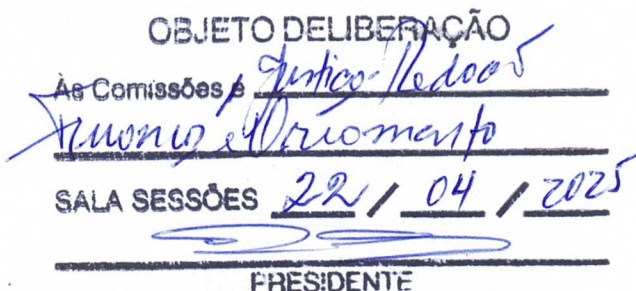 OBJETO DELIBERAÇÃO
Às Comissões é Justiça Redação
Finanças e Orçamento
SALA SESSÕES 22 / 04 / 2025
PRESIDENTE